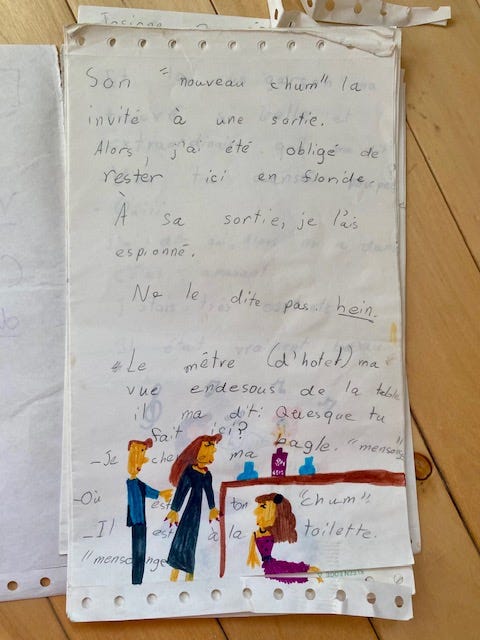 Son "nouveau chum" la
invité à une sortie.
Alors, j'ai été obligé de
rester ici en floride.
À sa sortie, je l'ais
espionné.
Ne le dite pas hein.
*Le mêtre (d'hotet) ma
vue endesous de la table
il ma dit: Quesque tu
fait ici?
_Je cher ma bagle. "mensonge
-Où est ton "chum"
-Il est à la toilette.
"mensonge